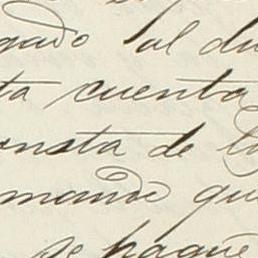 gado Sal du
ta cuenta
onsta de la
mande qu
se pague